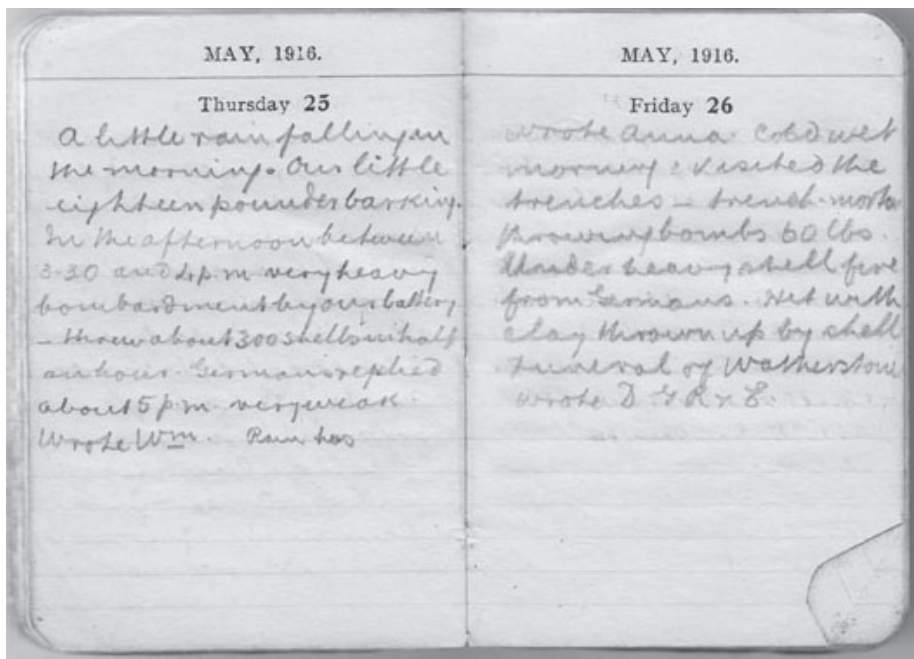 MAY, 1916.
Thursday 25
A little rain falling in
the morning. Our little
eighteen pounder barking.
In the afternoon between
3-30 and 4 p.m. very heavy
bombardment by our battery
- threw about 300 shells in half
an hour. Germans replied
about 5 p.m. very weak.
Wrote Wm. Rain has
MAY, 1916.
Friday 26
Wrote Anna. Cold wet
morning: Visited the
trenches - trench-mortar
throwing bombs 60 lbs.
Under heavy shell fire
from Germans. Hit with
clay thrown up by shell
Funeral of Watherstone
wrote D.